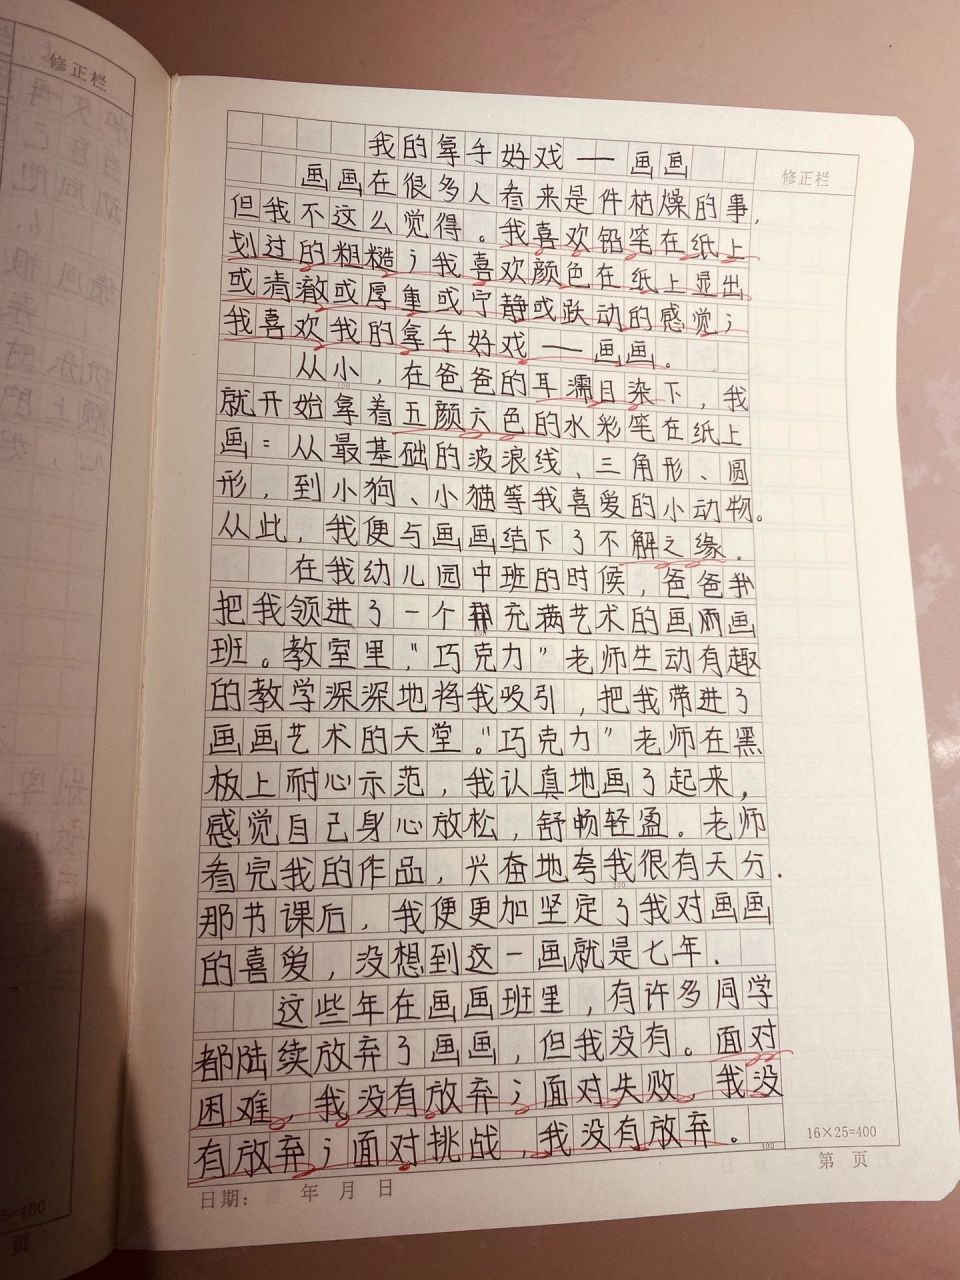 修正栏
我的拿手好戏——画画
画画在很多人看来是件枯燥的事,
但我不这么觉得。我喜欢铅笔在纸上
划过的粗糙；我喜欢颜色在纸上显出
或清澈或厚重或宁静或跃动的感觉；
我喜欢我的拿手好戏——画画。
从小，在爸爸的耳濡目染下，我
就开始拿着五颜六色的水彩笔在纸上
画：从最基础的波浪线、三角形、圆
形，到小狗、小猫等我喜爱的小动物。
从此，我便与画画结下了不解之缘.
在我幼儿园中班的时候，爸爸
把我领进了一个充满艺术的画画
班。教室里,“巧克力”老师生动有趣
的教学深深地将我吸引，把我带进了
画画艺术的天堂。“巧克力”老师在黑
板上耐心示范，我认真地画了起来，
感觉自己身心放松，舒畅轻盈。老师
看完我的作品，兴奋地夸我很有天分.
那节课后，我便更加坚定了我对画画
的喜爱，没想到这一画就是七年.
这些年在画画班里，有许多同学
都陆续放弃了画画，但我没有。面对
困难，我没有放弃；面对失败，我没
有放弃；面对挑战，我没有放弃。
修正栏
16×25=400
日期： 年 月 日
第 页